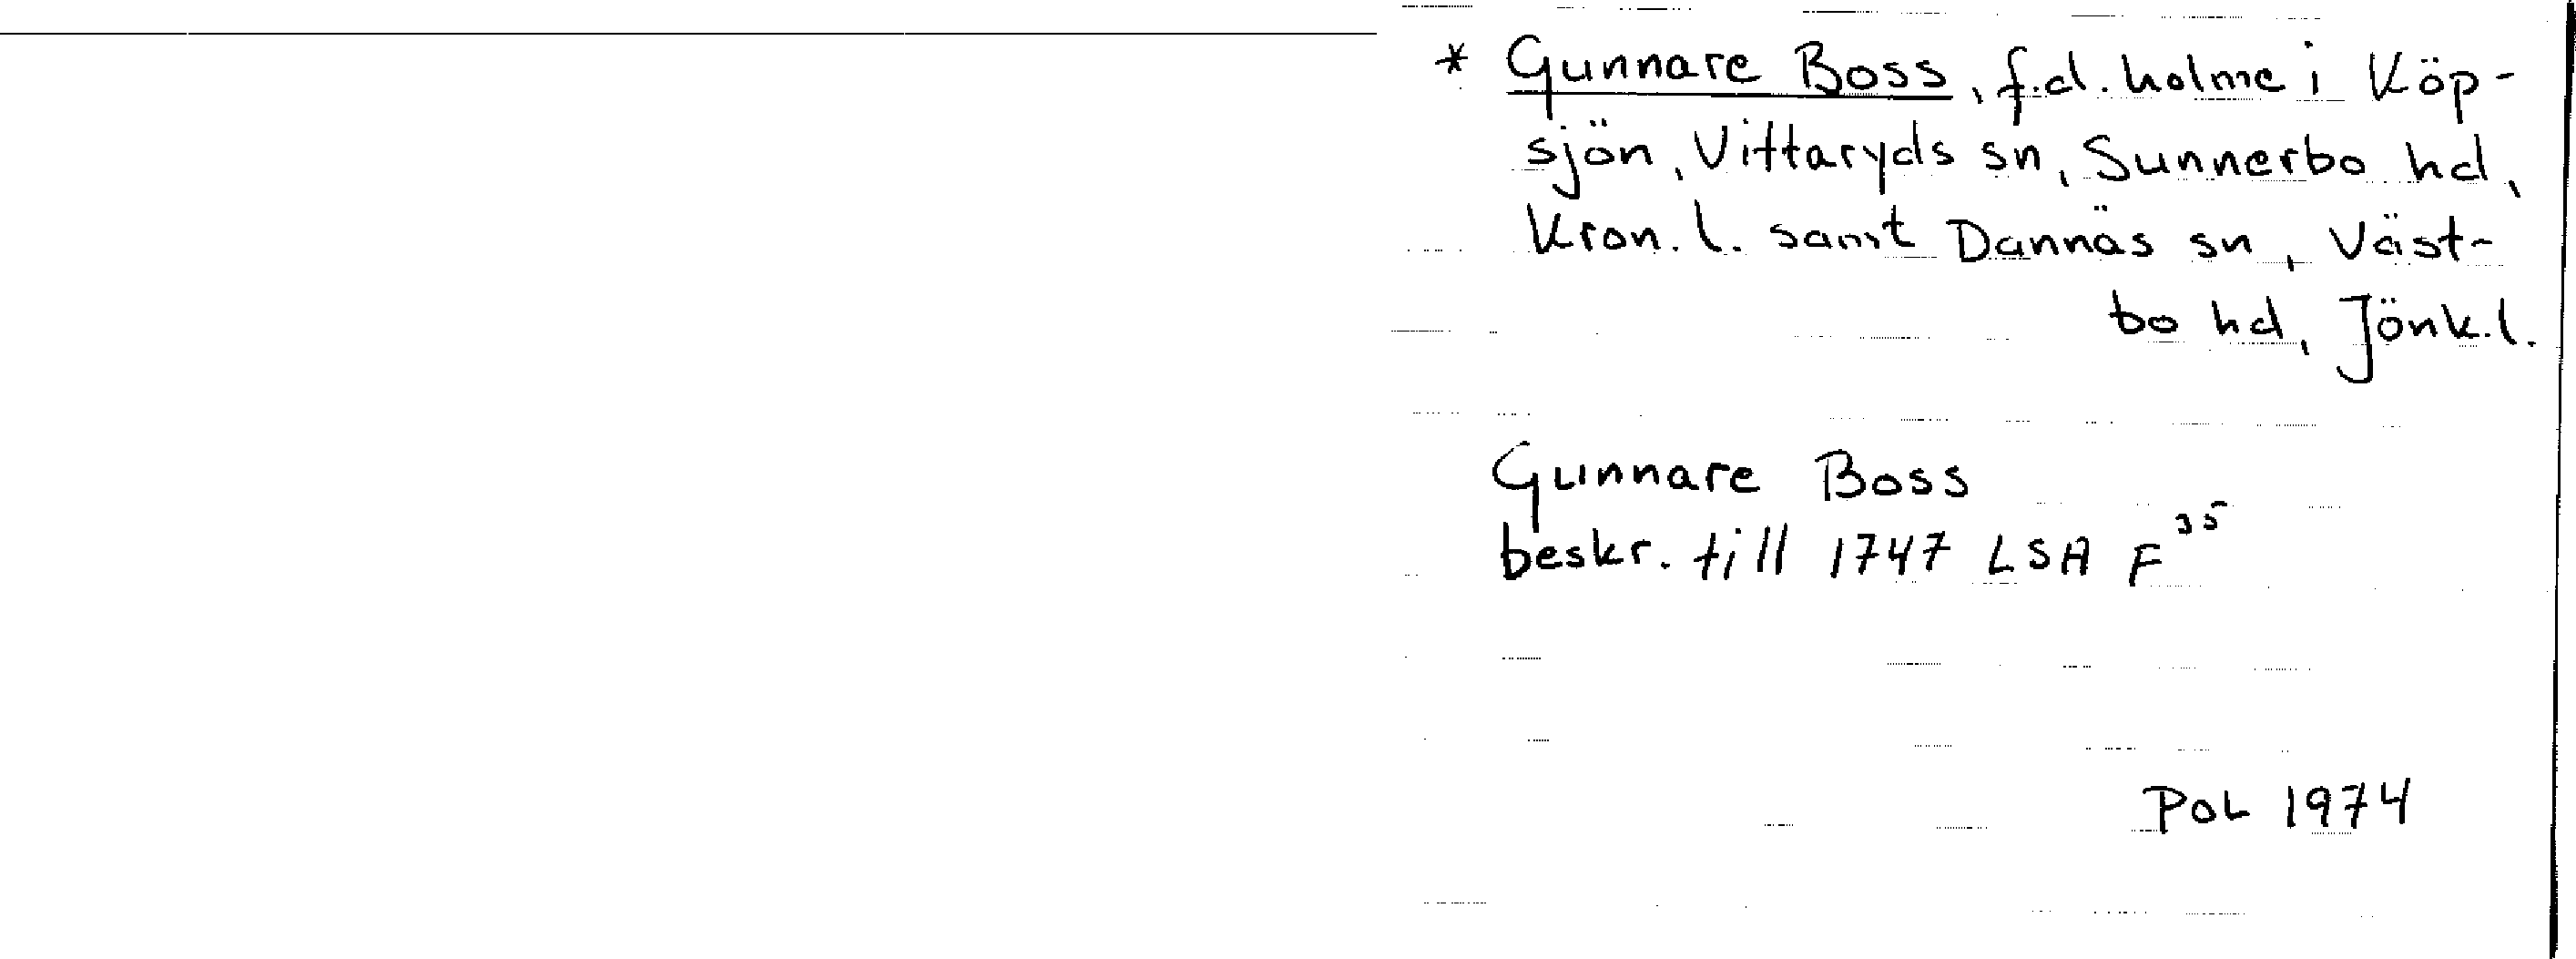 * Gunnare Boss, f.d. holme i Köp-
sjön, Vittaryds sn, Sunnerbo hd,
Kron. l. samt Dannäs sn, Väst-
bo hd, Jönk.l.
Gunnare Boss
beskr. till 1747 LSA F³⁵
PoL 1974